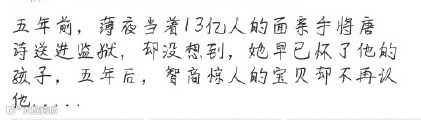 五年前，薄夜当着13亿人的面亲手将唐
诗送进监狱，却没想到，她早已怀了他的
孩子，五年后，智商惊人的宝贝却不再认
他.....